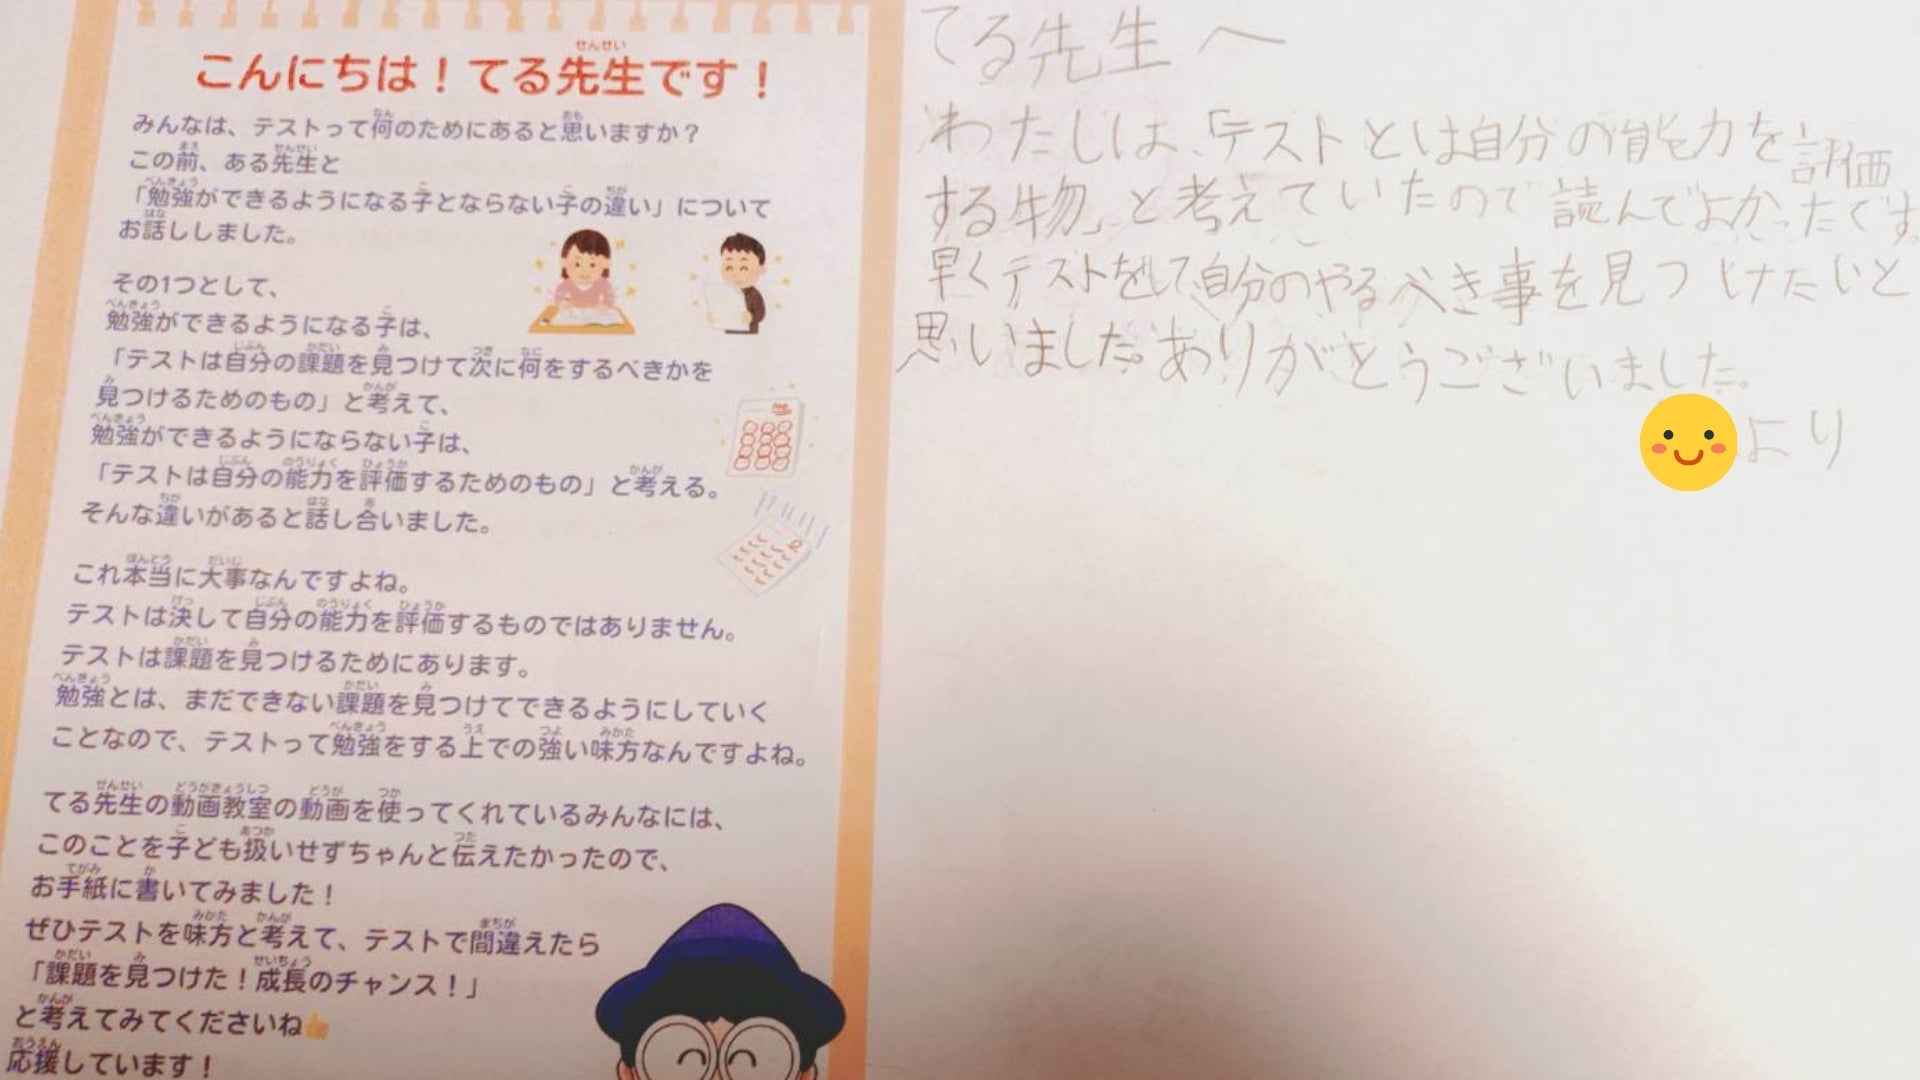 こんにちは！てる先生です！
みんなは、テストって何のためにあると思いますか？
この前、ある先生と
「勉強ができるようになる子とならない子の違い」について
お話ししました。
その1つとして、
勉強ができるようになる子は、
「テストは自分の課題を見つけて次に何をするべきかを
見つけるためのもの」と考えて、
勉強ができるようにならない子は、
「テストは自分の能力を評価するためのもの」と考える。
そんな違いがあると話し合いました。
これ本当に大事なんですよね。
テストは決して自分の能力を評価するものではありません。
テストは課題を見つけるためにあります。
勉強とは、まだできない課題を見つけてできるようにしていく
ことなので、テストって勉強をする上での強い味方なんですよね。
てる先生の動画教室の動画を使ってくれているみんなには、
このことを子ども扱いせずちゃんと伝えたかったので、
お手紙に書いてみました！
ぜひテストを味方と考えて、テストで間違えたら
「課題を見つけた！成長のチャンス！」
と考えてみてくださいね
応援しています！
てる先生へ
わたしは、「テストとは自分の能力を評価
する物」と考えていたので読んでよかったです。
早くテストをして、自分のやるべき事を見つけたいと
思いました。ありがとうございました。
より